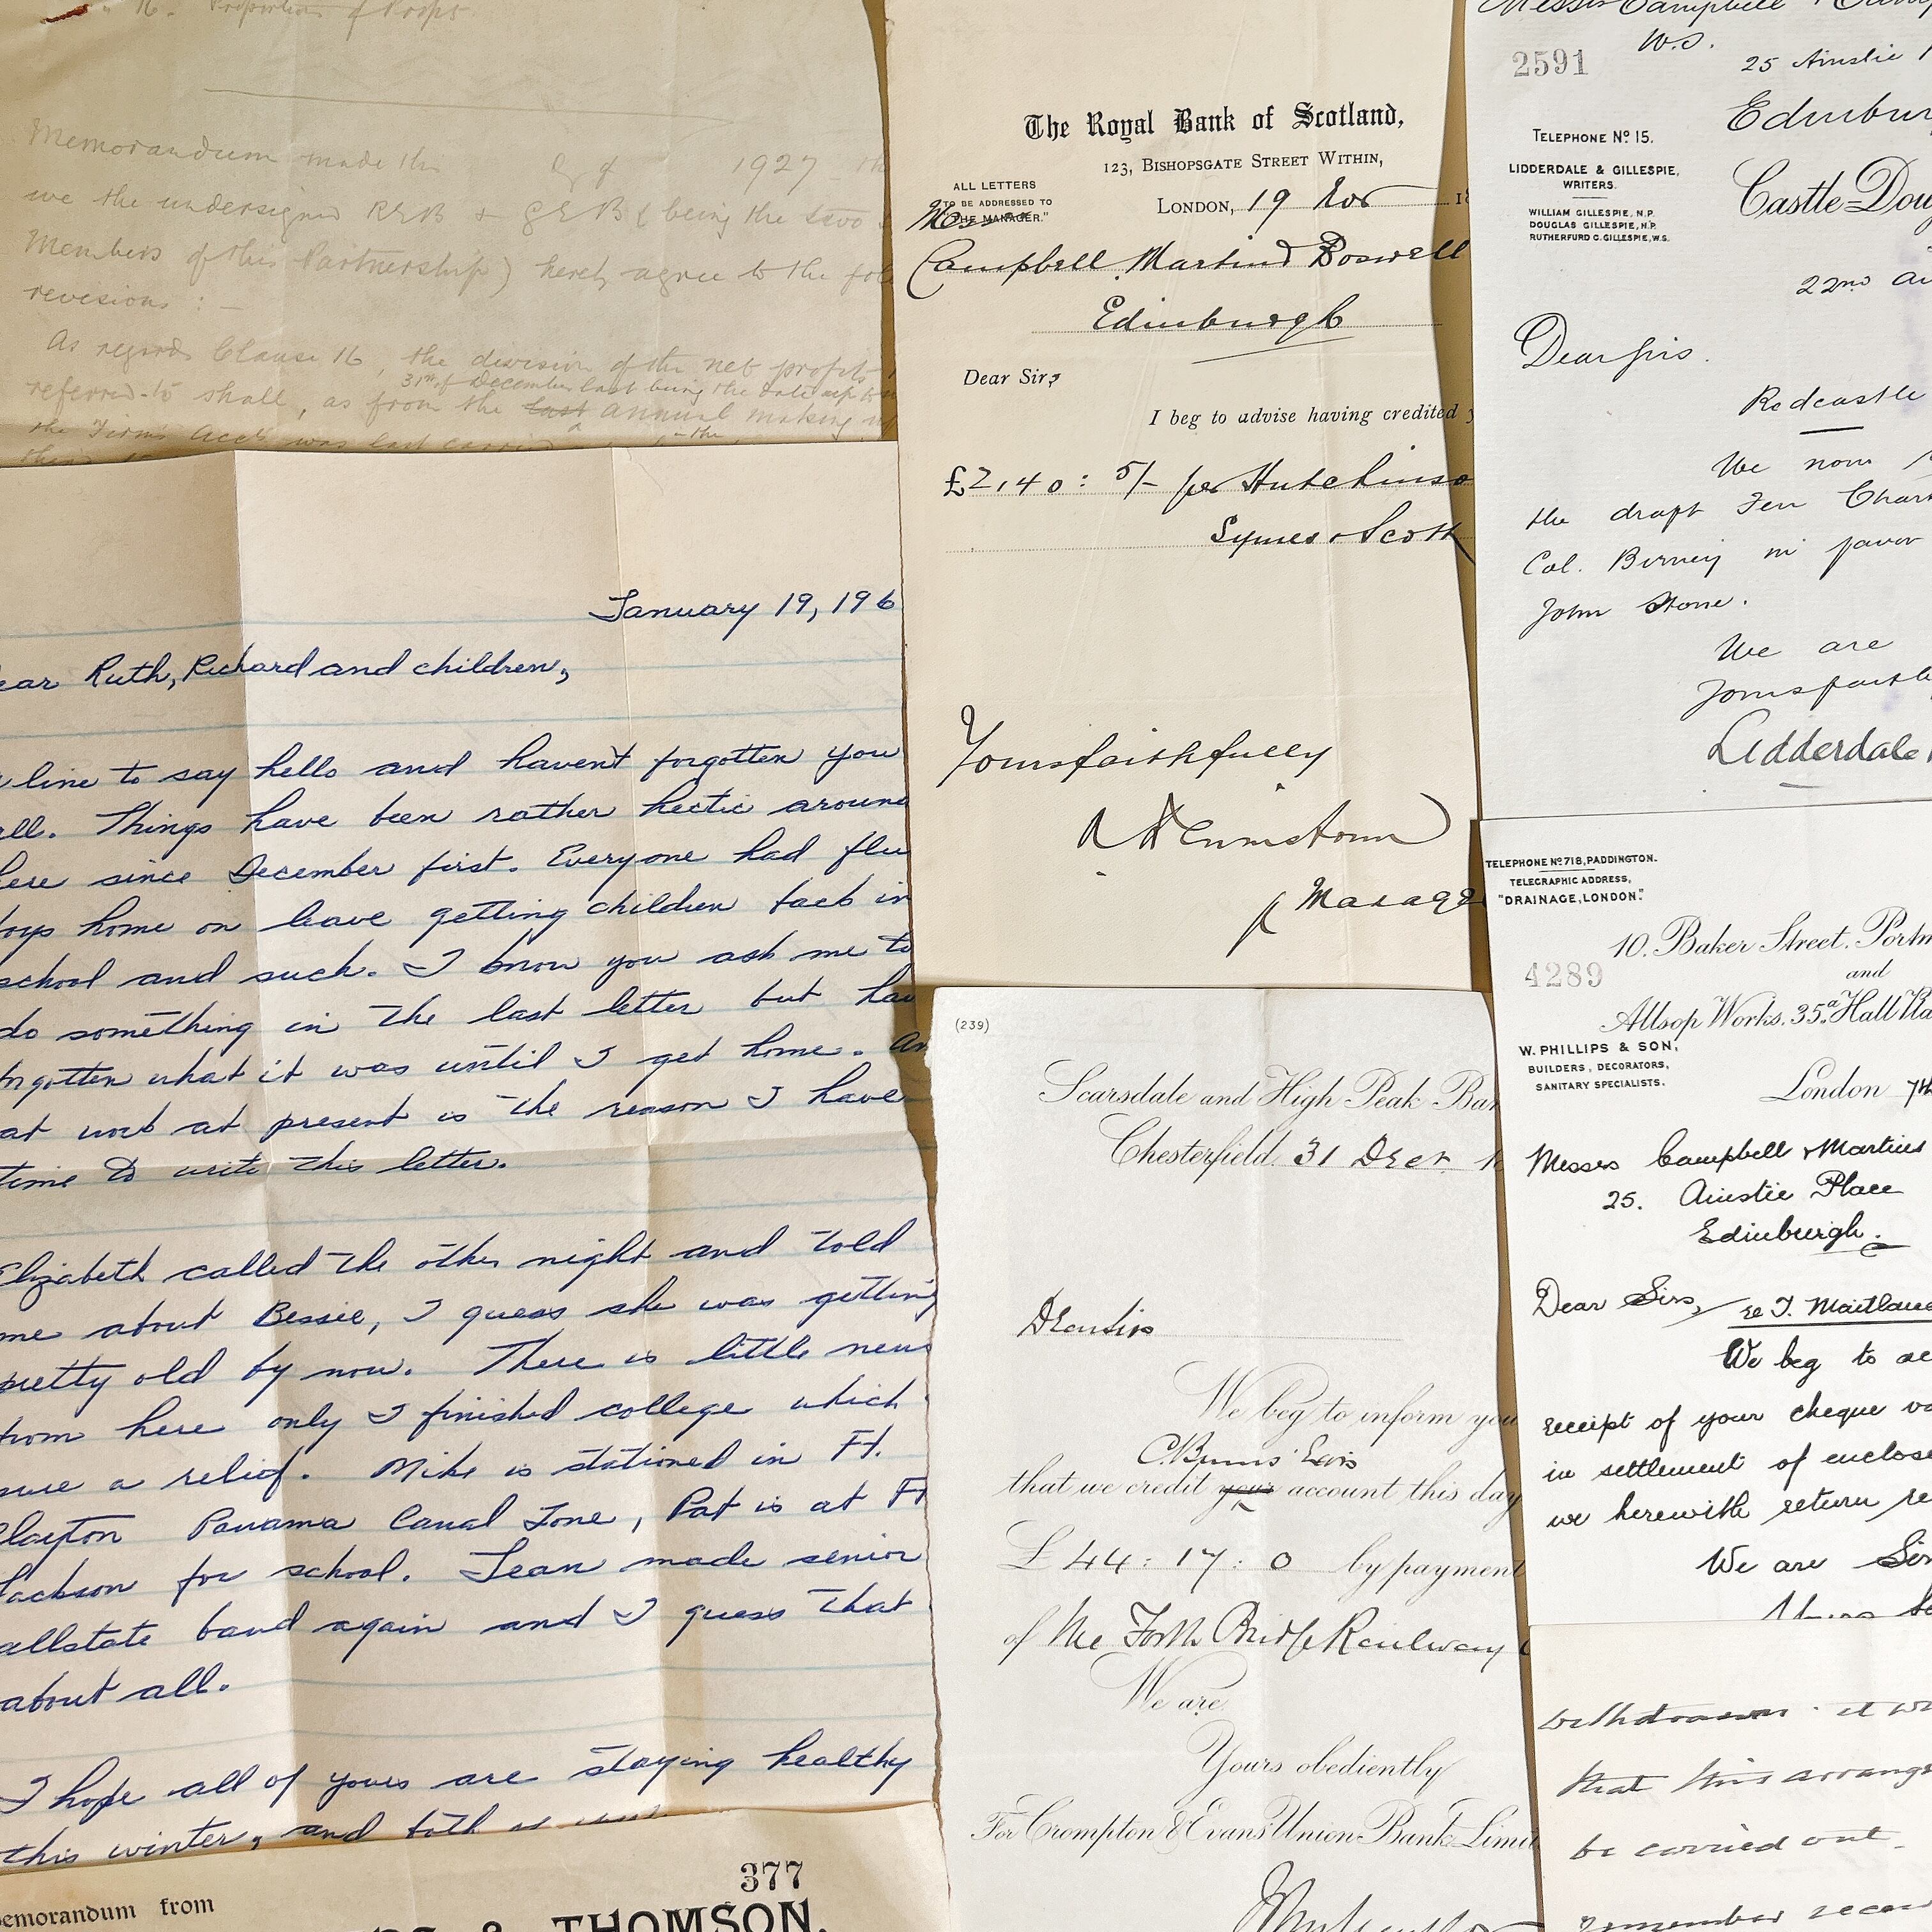 16. Proportion of Profits.
Memorandum made the 1927
we the undersigned REB + GEB (being the two
Members of this Partnership) hereby agree to the
revisions : —
As regards Clause 16, the division of the net profits
31st of December last being the date up to
referred to shall, as from the last annual making
the Firm's Accts was last carried
January 19, 196
ear Ruth, Richard and children,
line to say hello and havent forgotten you
all. Things have been rather hectic around
here since December first. Everyone had flu
boys home on leave getting children back in
school and such. I know you ask me to
do something in the last letter but hav
forgotten what it was until I get home. An
at work at present is the reason I have
time to write this letter.
Elizabeth called the other night and told
me about Bessie, I guess she was getting
pretty old by now. There is little news
from here only I finished college which
sure a relief. Mike is stationed in Ft.
Clayton Panama Canal Zone, Pat is at Ft
Jackson for school. Jean made senior
allstate band again and I guess that
about all.
I hope all of yours are staying healthy
this winter, and
emorandum from
377
& THOMSON.
The Royal Bank of Scotland,
123, BISHOPSGATE STREET WITHIN,
ALL LETTERS
TO BE ADDRESSED TO
"THE MANAGER."
LONDON, 19 Nov 18
Mess
Campbell Martin & Boswell
Edinburgh
Dear Sirs
I beg to advise having credited y
£2,40: 5/- per Hutchinso
Symes & Scott
Yours faithfully
Manage
(239)
Scarsdale and High Peak Ban
Chesterfield, 31 Decr 1
Dear Sirs
We beg to inform you
C. Burns' Exrs
that we credit your account this day
£ 44: 17: 0 by payment
of the Forth Bridge Railway
We are
Yours obediently
For Crompton & Evans' Union Bank Limit
Messrs Campbell &
W.S.
2591
25 Ainslie
Edinbur
TELEPHONE No 15.
LIDDERDALE & GILLESPIE,
WRITERS.
WILLIAM GILLESPIE, N.P.
DOUGLAS GILLESPIE, N.P.
RUTHERFURD C. GILLESPIE, W.S.
Castle-Dou
22nd Au
Dear Sirs.
Redcastle
We now
the draft Feu Chart
Col. Birney in favor
John Stone.
We are
Yours faithf
Lidderdale
TELEPHONE No 718, PADDINGTON.
TELEGRAPHIC ADDRESS,
"DRAINAGE, LONDON."
10. Baker Street. Portm
and
4289
Allsop Works. 35a Hall Pla
W. PHILLIPS & SON,
BUILDERS, DECORATORS,
SANITARY SPECIALISTS.
London 7th
Messrs Campbell & Martins
25. Ainslie Place
Edinburgh.
Dear Sirs, re T. Maitland
We beg to ac
receipt of your cheque va
in settlement of enclose
we herewith return re
We are Sir
withdrawn. it w
that this arrange
be carried out.
remember